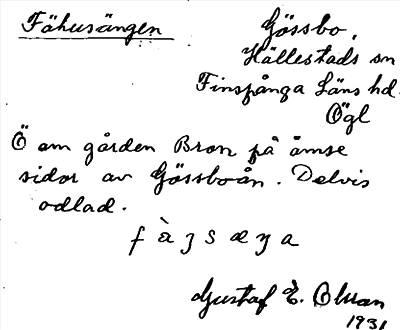 Fähusängen
Gössbo,
Hällestads sn
Finspånga Läns hd.
Ögl
Ö om gården Bron på ömse
sidor av Gössboån. Delvis
odlad.
Gustaf E.
1931